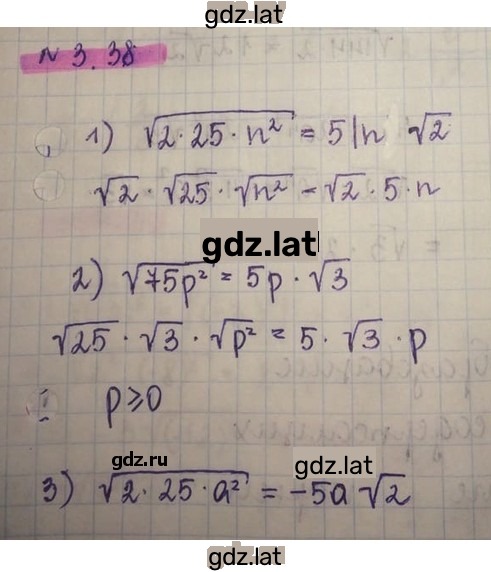 gdz.lat
N 3.38
1) √(2·25·n²) = 5|n √2
√2 · √25 · √n² = √2 · 5 · n
gdz.lat
2) √(75p²) = 5p · √3
√25 · √3 · √p² = 5 · √3 · p
p ≥ 0
gdz.ru gdz.lat
3) √(2·25·a²) = -5a √2
gdz.lat